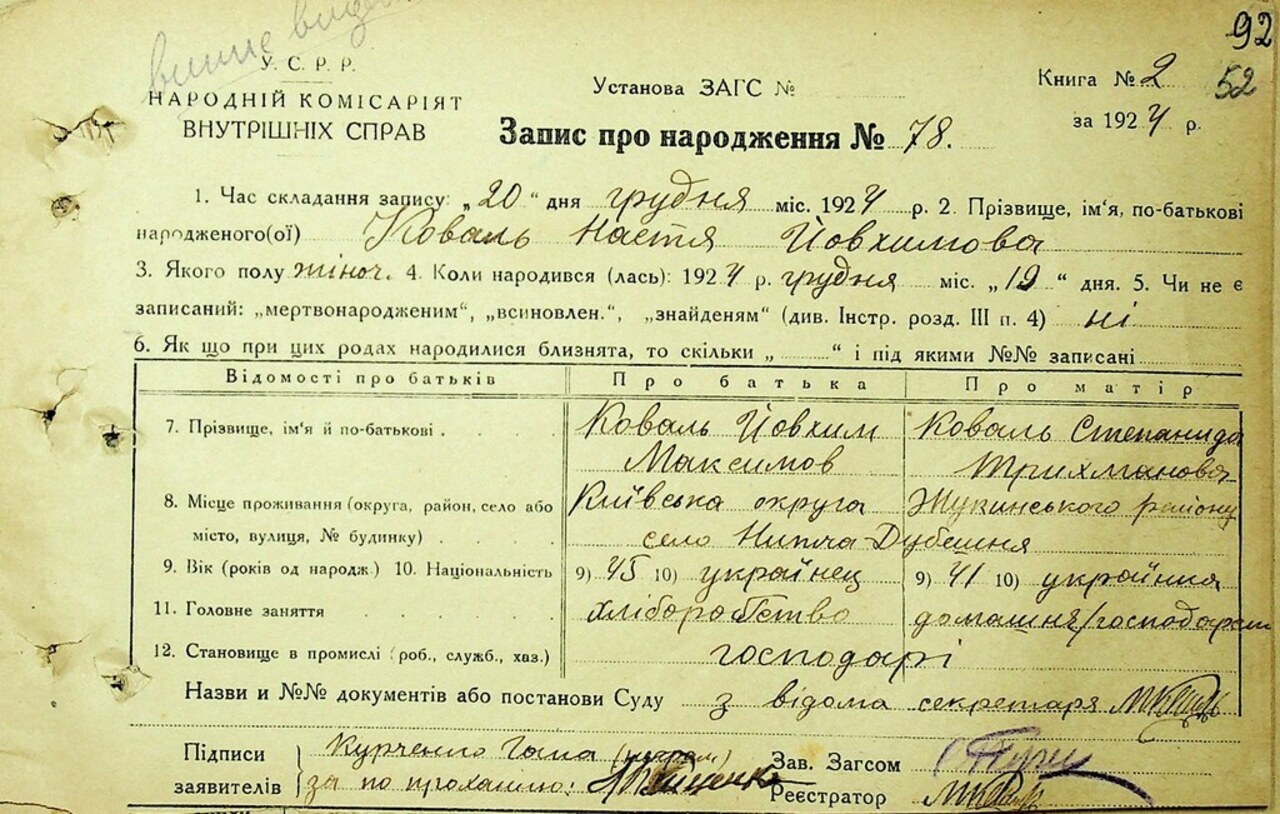 вище
92
У. С. Р. Р.
НАРОДНІЙ КОМІСАРІЯТ
ВНУТРІШНІХ СПРАВ
Установа ЗАГС №
Книга № 2
52
за 1924 р.
Запис про народження № 78.
1. Час складання запису: „20“ дня грудня міс. 1924 р. 2. Прізвище, ім'я, по-батькові
народженого(ої) Коваль Настя Йовхимова
3. Якого полу жіноч. 4. Коли народився (лась): 1924 р. грудня міс. „19“ дня. 5. Чи не є
записаний: „мертвонародженим“, „всиновлен.“, „знайденям“ (див. Інстр. розд. III п. 4) ні
6. Як що при цих родах народилися близнята, то скільки „ “ і під якими №№ записані
Відомості про батьків Про батька Про матір
7. Прізвище, ім'я й по-батькові Коваль Йовхим Коваль Степанида
Максимов Трихманова
8. Місце проживання (округа, район, село або Київська округа Жукинського району
місто, вулиця, № будинку) село Нишча-Дубешня
9. Вік (років од народж.) 10. Національність 9) 45 10) украйнец 9) 41 10) украйинка
11. Головне заняття хліборобство домашня/господарст
12. Становище в промислі (роб., служб., хаз.) господарі
Назви и №№ документів або постанови Суду з відома секретаря
Підписи Курченко Гапа
заявителів за по проханню:
Зав. Загсом
Реєстратор